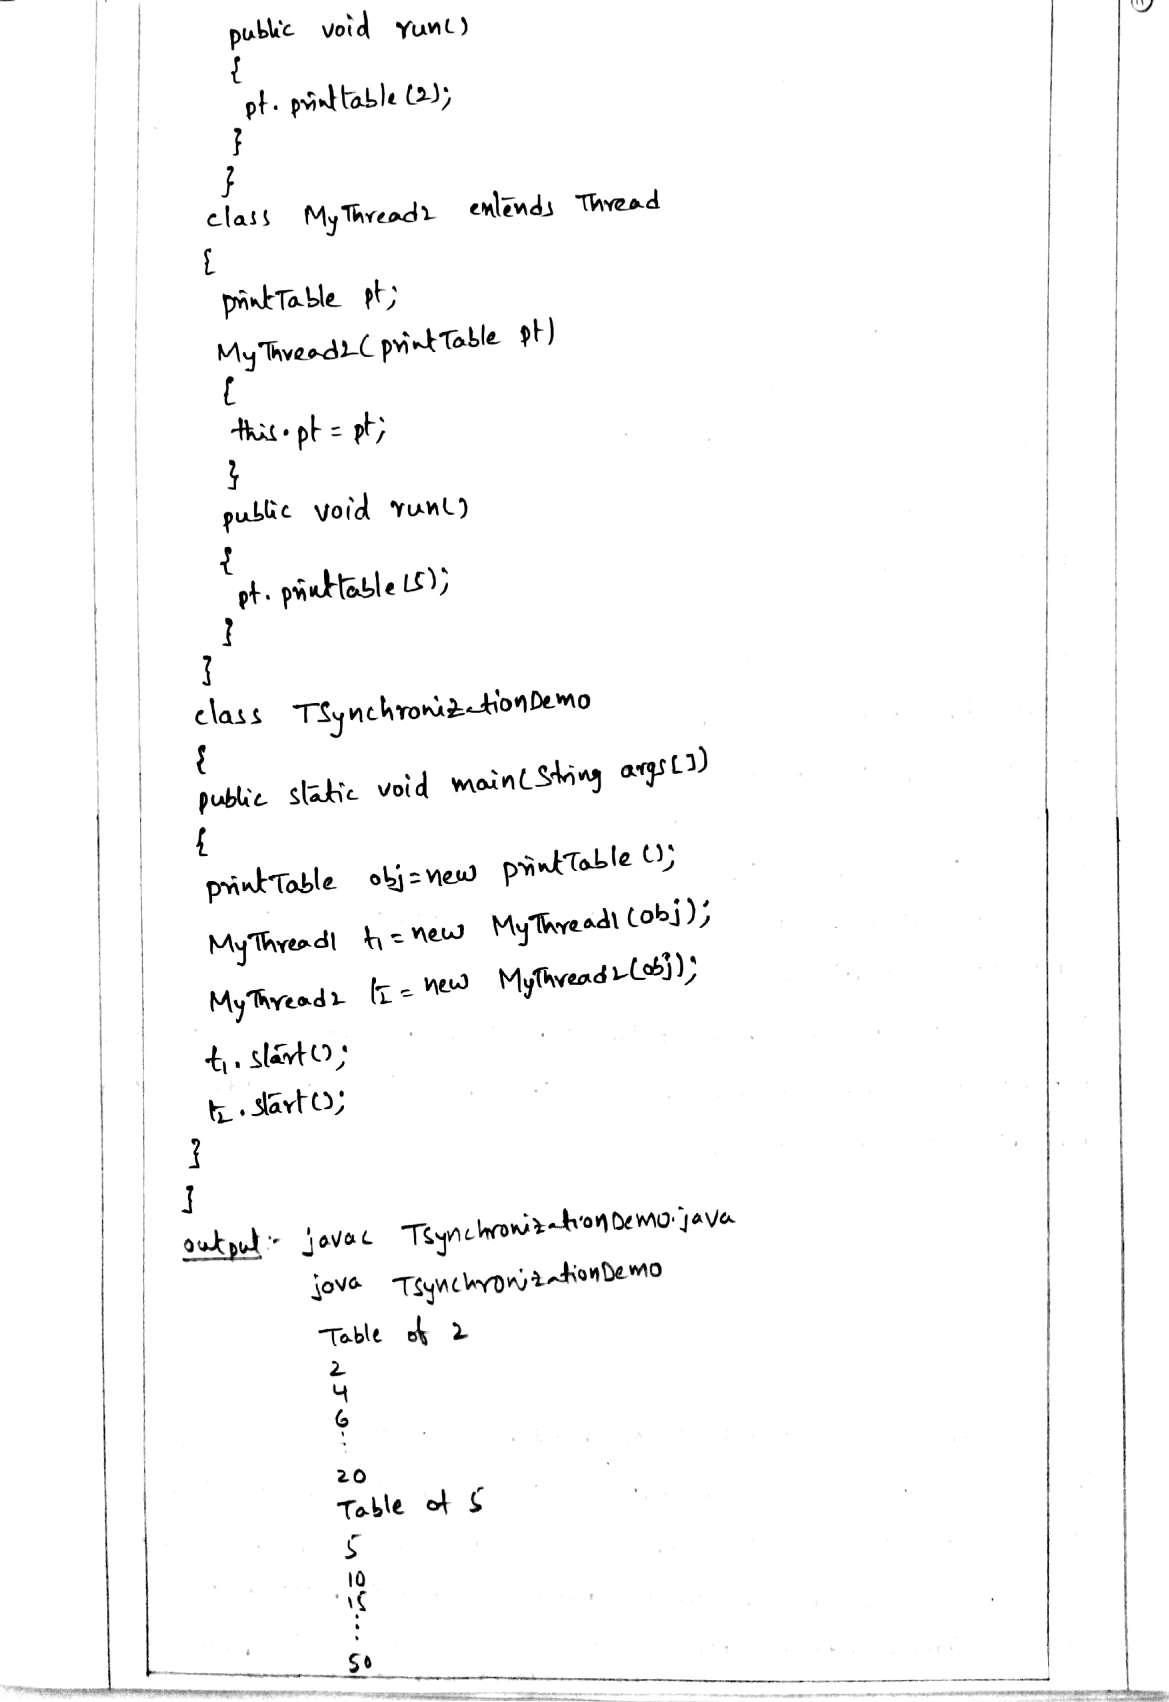 public void run()
{
pt.printtable(2);
}
}
class MyThread2 extends Thread
{
printTable pt;
MyThread2(printTable pt)
{
this.pt = pt;
}
public void run()
{
pt.printtable(5);
}
}
class TSynchronizationDemo
{
public static void main(String args[])
{
printTable obj=new printTable();
MyThread1 t1=new MyThread1(obj);
MyThread2 t2=new MyThread2(obj);
t1.start();
t2.start();
}
}
output:- javac TSynchronizationDemo.java
java TSynchronizationDemo
Table of 2
2
4
6
:
20
Table of 5
5
10
15
:
50